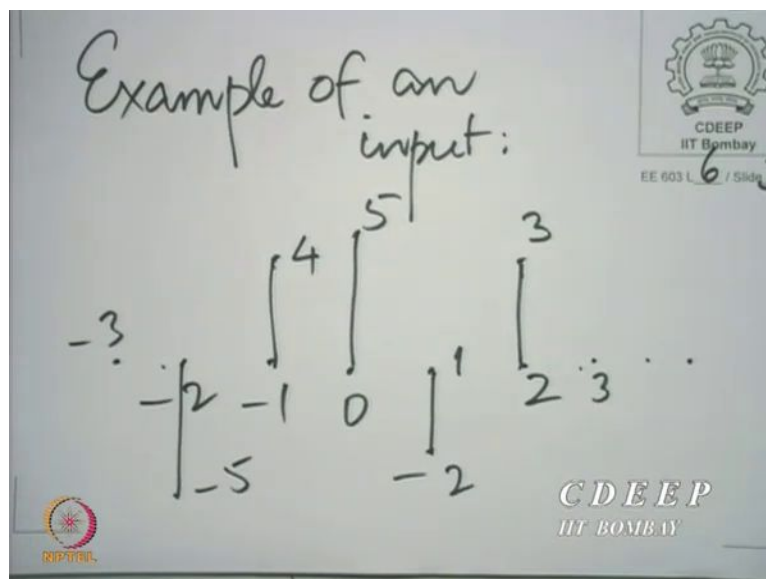 Example of an
input:
CDEEP
IIT Bombay
EE 603 L 6 / Slide
5
4
3
-3
1
-2 -1 0 2 3
-5
-2
CDEEP
IIT BOMBAY
NPTEL